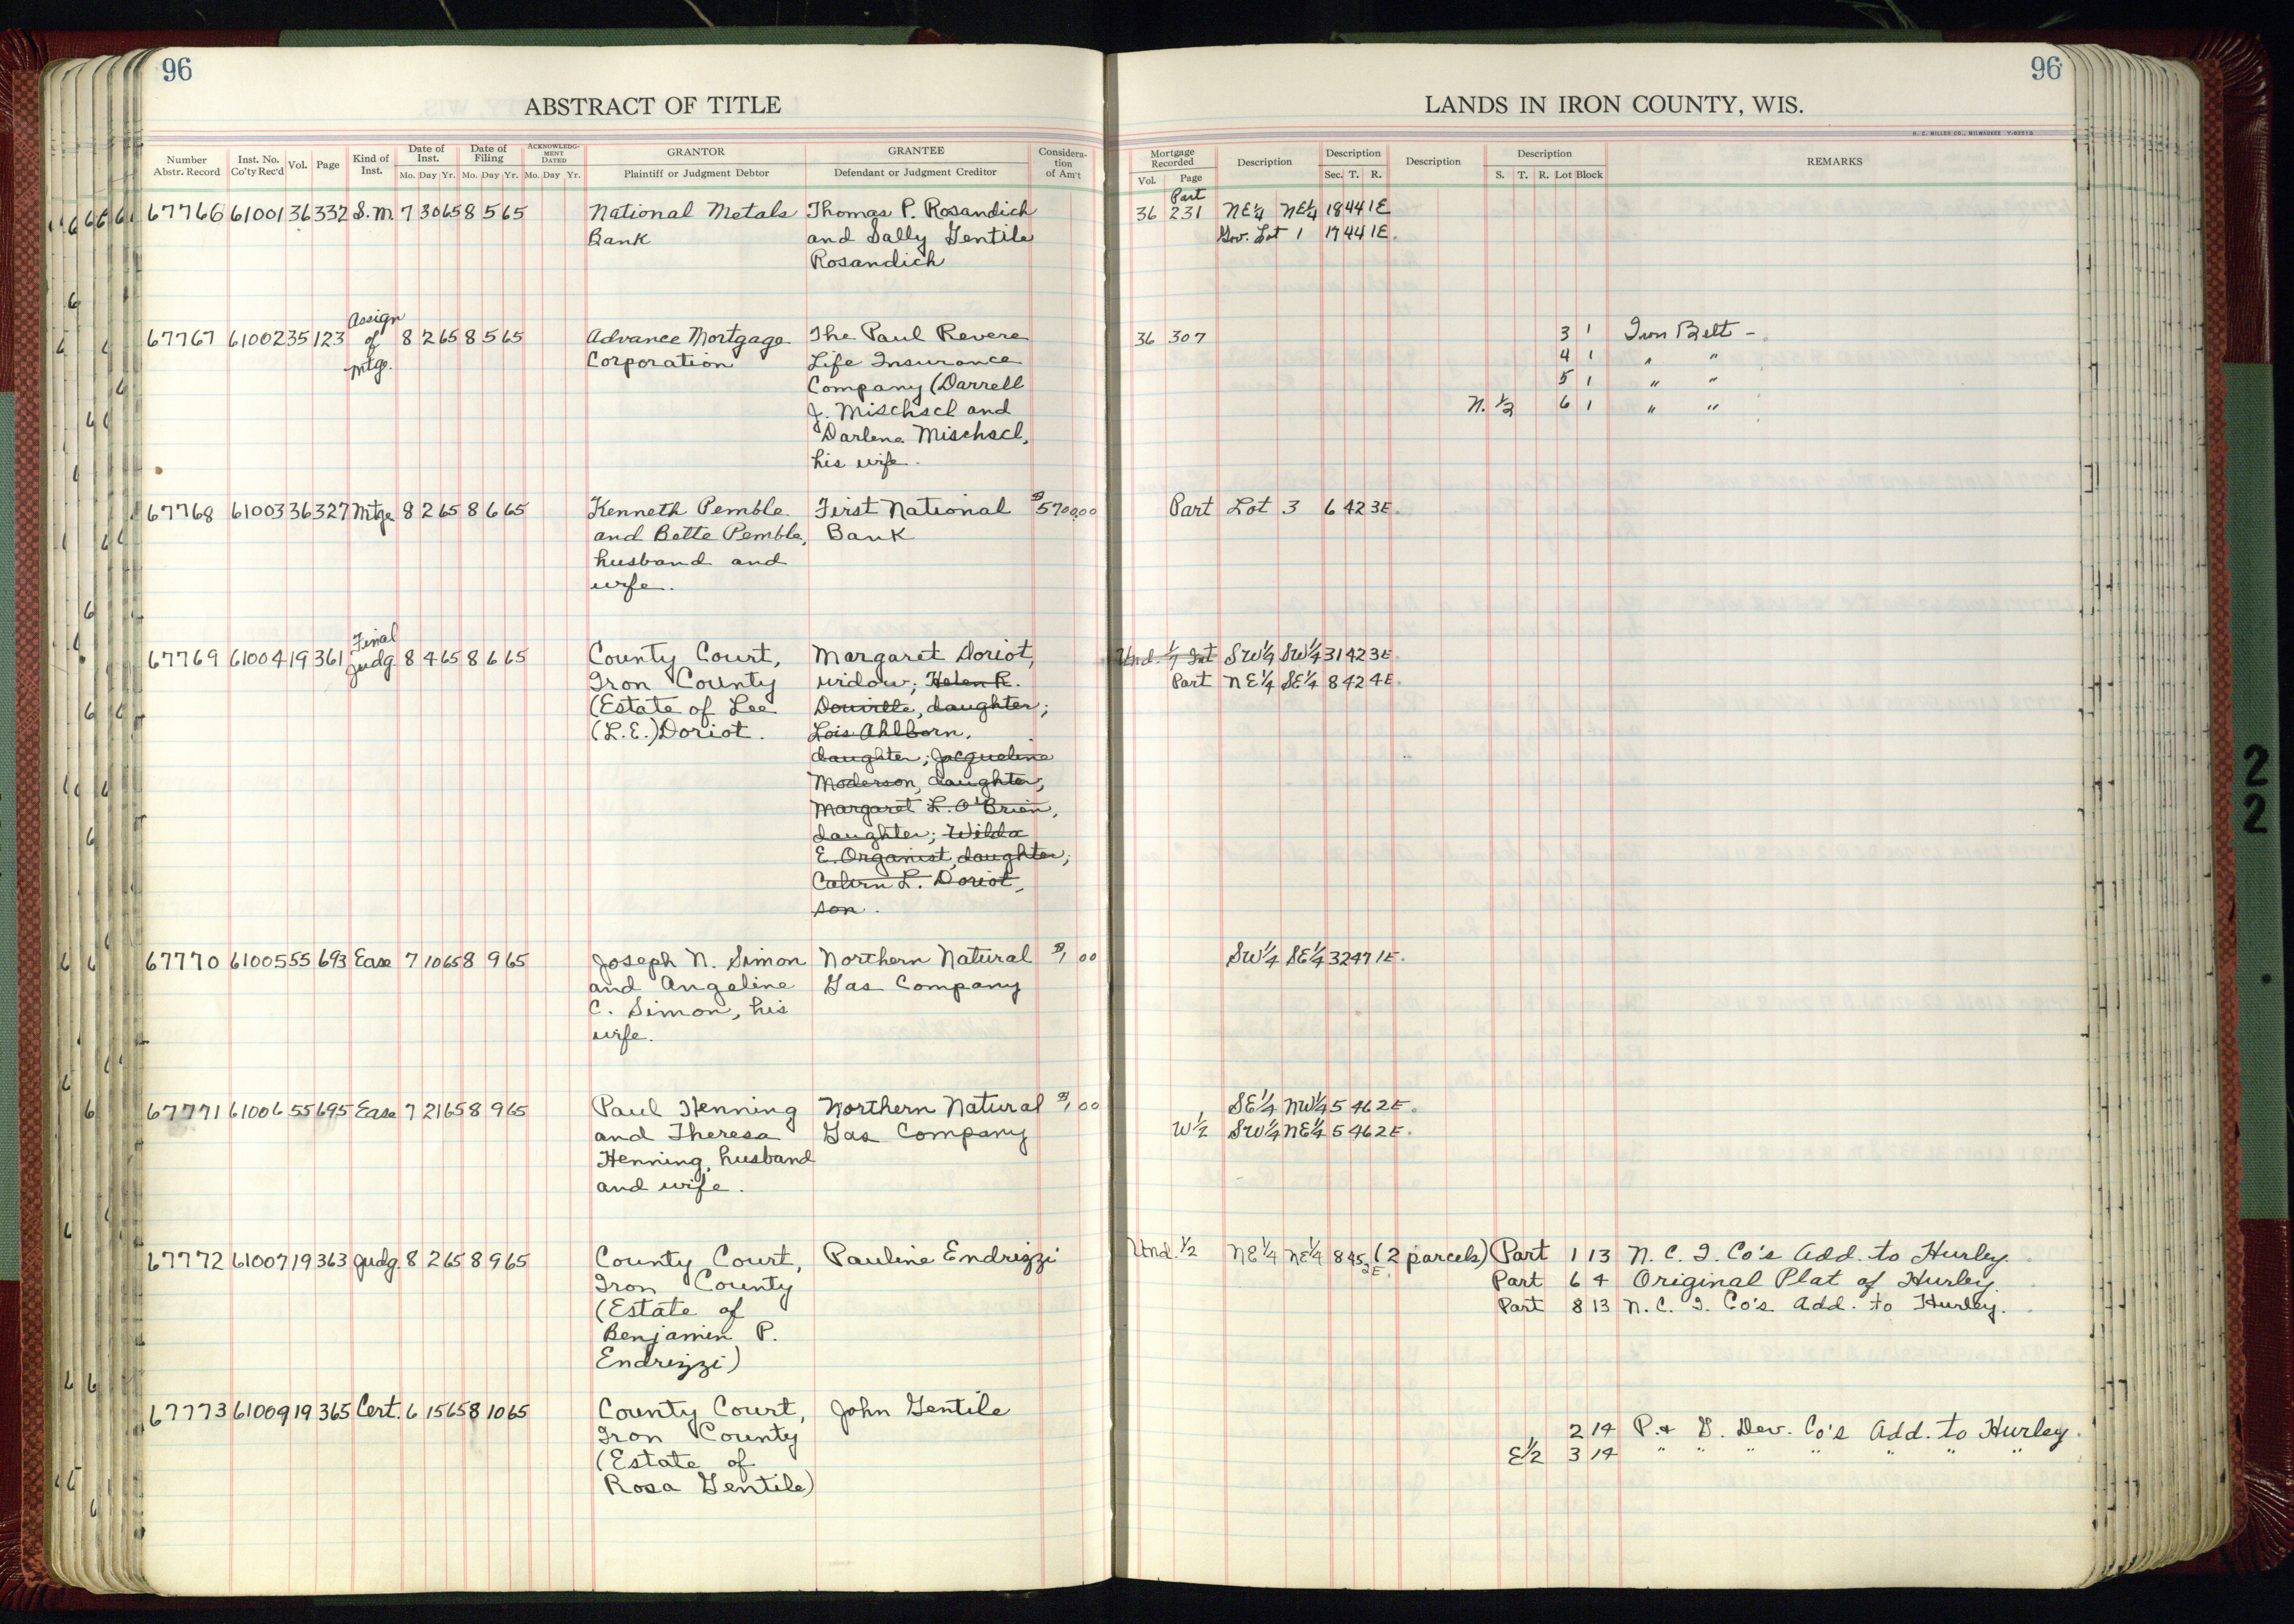 96
96
ABSTRACT OF TITLE
LANDS IN IRON COUNTY, WIS.
H. C. MILLER CO., MILWAUKEE
Number Abstr. Record
Inst. No. Co'ty Rec'd
Vol.
Page
Kind of Inst.
Date of Inst.
Mo. Day Yr.
Date of Filing
Mo. Day Yr.
ACKNOWLEDGMENT DATED
Mo. Day Yr.
GRANTOR
Plaintiff or Judgment Debtor
GRANTEE
Defendant or Judgment Creditor
Consideration of Am't
Mortgage Recorded
Vol. Page
Description
Description
Sec. T. R.
Description
Description
S. T. R. Lot Block
REMARKS
67766 61001 36 332 S.M. 7 30 65 8 5 65 National Metals Thomas P. Rosandich 36 231 Part NE¼ NE¼ 18 44 1E
Bank and Sally Gentile Gov. Lot 1 17 44 1E.
Rosandich
67767 61002 35 123 Assign of Mtge. 8 2 65 8 5 65 Advance Mortgage The Paul Revere 36 307 3 1 Iron Belt -
Corporation Life Insurance 4 1 " "
Company (Darrell 5 1 " "
J. Mischscl and N. ½ 6 1 " "
Darlene Mischscl,
his wife.
67768 61003 36 327 Mtge 8 2 65 8 6 65 Kenneth Pemble First National $5700.00 Part Lot 3 6 42 3E.
and Bette Pemble, Bank
husband and
wife.
67769 61004 19 361 Final Judg. 8 4 65 8 6 65 County Court, Margaret Doriot, Und. 1/7 Int SW¼ SW¼ 31 42 3E.
Iron County widow; Helen R. Part NE¼ SE¼ 8 42 4E.
(Estate of Lee Douville, daughter;
(L.E.) Doriot. Lois Ahlborn,
daughter; Jacqueline
Moderson, daughter;
Margaret L. O'Brien,
daughter; Wilda
E. Organist, daughter;
Calvin L. Doriot,
son.
67770 61005 55 693 Ease 7 10 65 8 9 65 Joseph N. Simon Northern Natural $1.00 SW¼ SE¼ 32 47 1E.
and Angeline Gas Company
C. Simon, his
wife.
67771 61006 55 695 Ease 7 21 65 8 9 65 Paul Henning Northern Natural $1.00 SE¼ NW¼ 5 46 2E.
and Theresa Gas Company W½ SW¼ NE¼ 5 46 2E.
Henning, husband
and wife.
67772 61007 19 363 Judg. 8 2 65 8 9 65 County Court, Pauline Endrizzi Und. ½ NE¼ NE¼ 8 45 2E. (2 parcels) Part 1 13 N. C. I. Co's Add. to Hurley.
Iron County Part 6 4 Original Plat of Hurley.
(Estate of Part 8 13 N. C. I. Co's Add. to Hurley.
Benjamin P.
Endrizzi)
67773 61009 19 365 Cert. 6 15 65 8 10 65 County Court, John Gentile 2 14 P. & D. Dev. Co's Add. to Hurley.
Iron County E½ 3 14 " " " " " " "
(Estate of
Rosa Gentile)
2
2